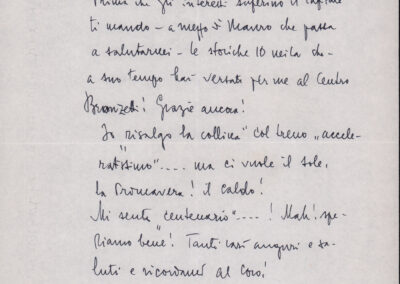 Prima che gli interessi superino il capitale
ti mando – a mezzo di Mauro che passa
a salutarmi – le storiche 10 mila che
a suo tempo hai versato per me al Centro
Bronzetti! Grazie ancora!
Io risalgo la collina" col treno „accele-
ratissimo".... ma ci vuole il sole,
la Primavera! il caldo!
Mi sento centenario".... ! Mah! spe-
riamo bene! Tanti cari auguri e sa-
luti e ricordami al Coro!